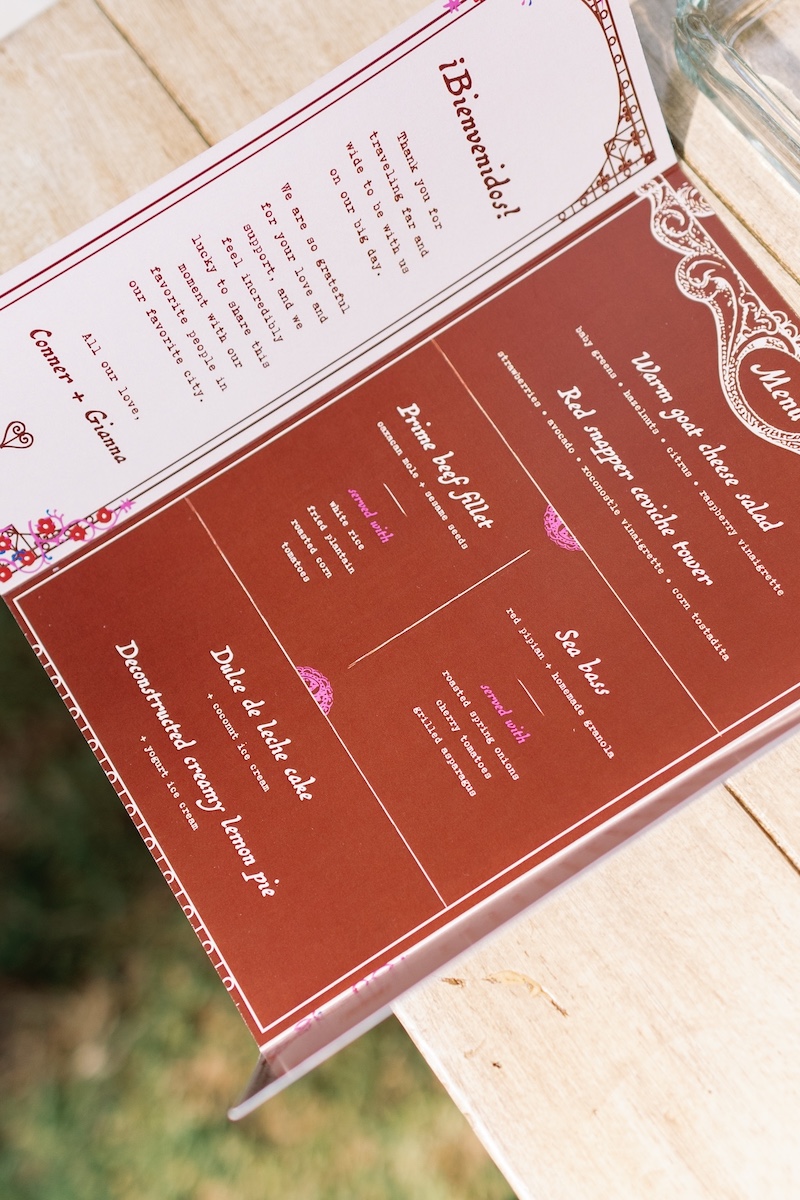 ¡Bienvenidos!
Thank you for
traveling far and
wide to be with us
on our big day.
We are so grateful
for your love and
support, and we
feel incredibly
lucky to share this
moment with our
favorite people in
our favorite city.
All our love,
Conner + Gianna
Menu
Warm goat cheese salad
baby greens • hazelnuts • citrus • raspberry vinaigrette
Red snapper ceviche tower
strawberries • avocado • xoconostle vinaigrette • corn tostadita
Prime beef fillet
oaxacan mole + sesame seeds
served with
white rice
fried plantain
roasted corn
tomatoes
Sea bass
red pipian + homemade granola
served with
roasted spring onions
cherry tomatoes
grilled asparagus
Dulce de leche cake
+ coconut ice cream
Deconstructed creamy lemon pie
+ yogurt ice cream